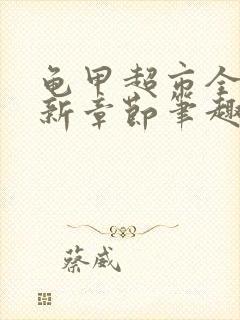 龟甲超市全
新章节笔趣
蔡威